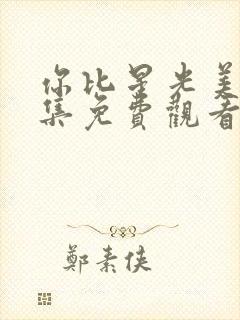 你比星光美
集免費觀看
鄭素俠